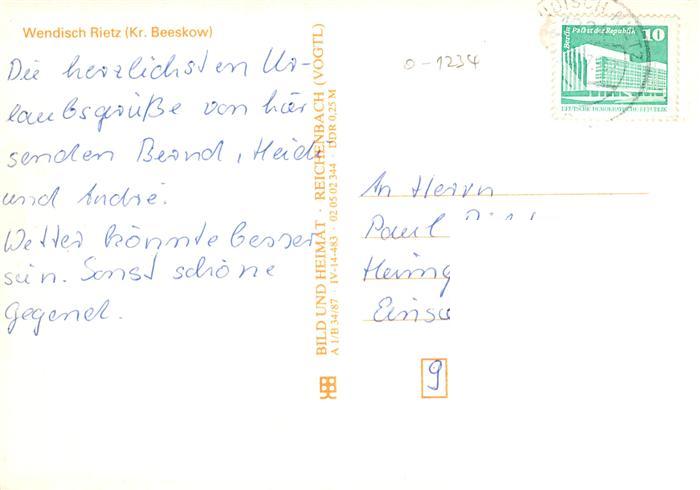 Wendisch Rietz (Kr. Beeskow)
Die herzlichsten Ur-
laubsgrüße von hier
senden Bernd, Heidi
und André.
Wetter könnte besser
sein. Sonst schöne
Gegend.
BILD UND HEIMAT · REICHENBACH (VOGTL)
A 1/B 34/87 · IV-14-483 · 02 05 02 344 · DDR 0,25 M
0-1234
Berlin Palast der Republik 10
DEUTSCHE DEMOKRATISCHE REPUBLIK
An Herrn
Paul
9